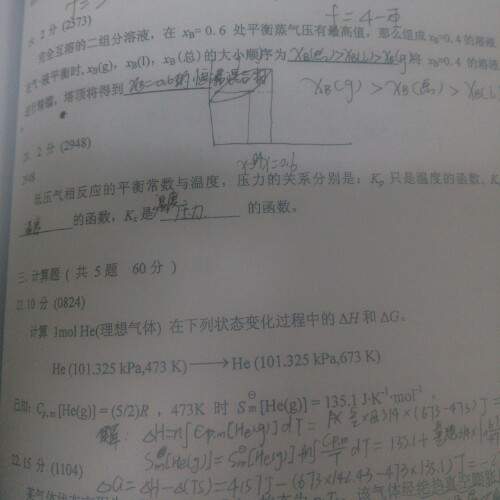 f = 4 - Φ
2 分 (2373)
完全互溶的二组分溶液，在 xB= 0.6 处平衡蒸气压有最高值，那么组成 xB=0.4 的溶液
气-液平衡时, xB(g), xB(l), xB (总) 的大小顺序为 xB(总)>xB(l)>xB(g) 将 xB=0.4 的溶液
进行精馏，塔顶将得到 xB=0.6的 恒沸混合物
xB(g) > xB(总) > xB(l)
xB=0.6
2 分 (2948)
2948
低压气相反应的平衡常数与温度、压力的关系分别是：Kp 只是温度的函数, K
温度 的函数，Kx 是 温度 压力 的函数。
三、计算题 ( 共 5 题 60 分 )
10 分 (0824)
计算 1mol He(理想气体) 在下列状态变化过程中的 ΔH 和 ΔG。
He (101.325 kPa,473 K) ⟶ He (101.325 kPa,673 K)
已知: Cp,m[He(g)] = (5/2)R , 473K 时 S⊖m[He(g)] = 135.1 J·K⁻¹·mol⁻¹
解: ΔH=n∫Cp,m[He(g)]dT = 1×5/2×8.314×(673-473)
Sm[He(g)] = Sm[He(g)] + ∫Cp,m/T dT = 135.1 +
22. 15 分 (1104)
ΔG = ΔH - Δ(TS) = 4157J - (673×142.43 - 473×135.1)J =